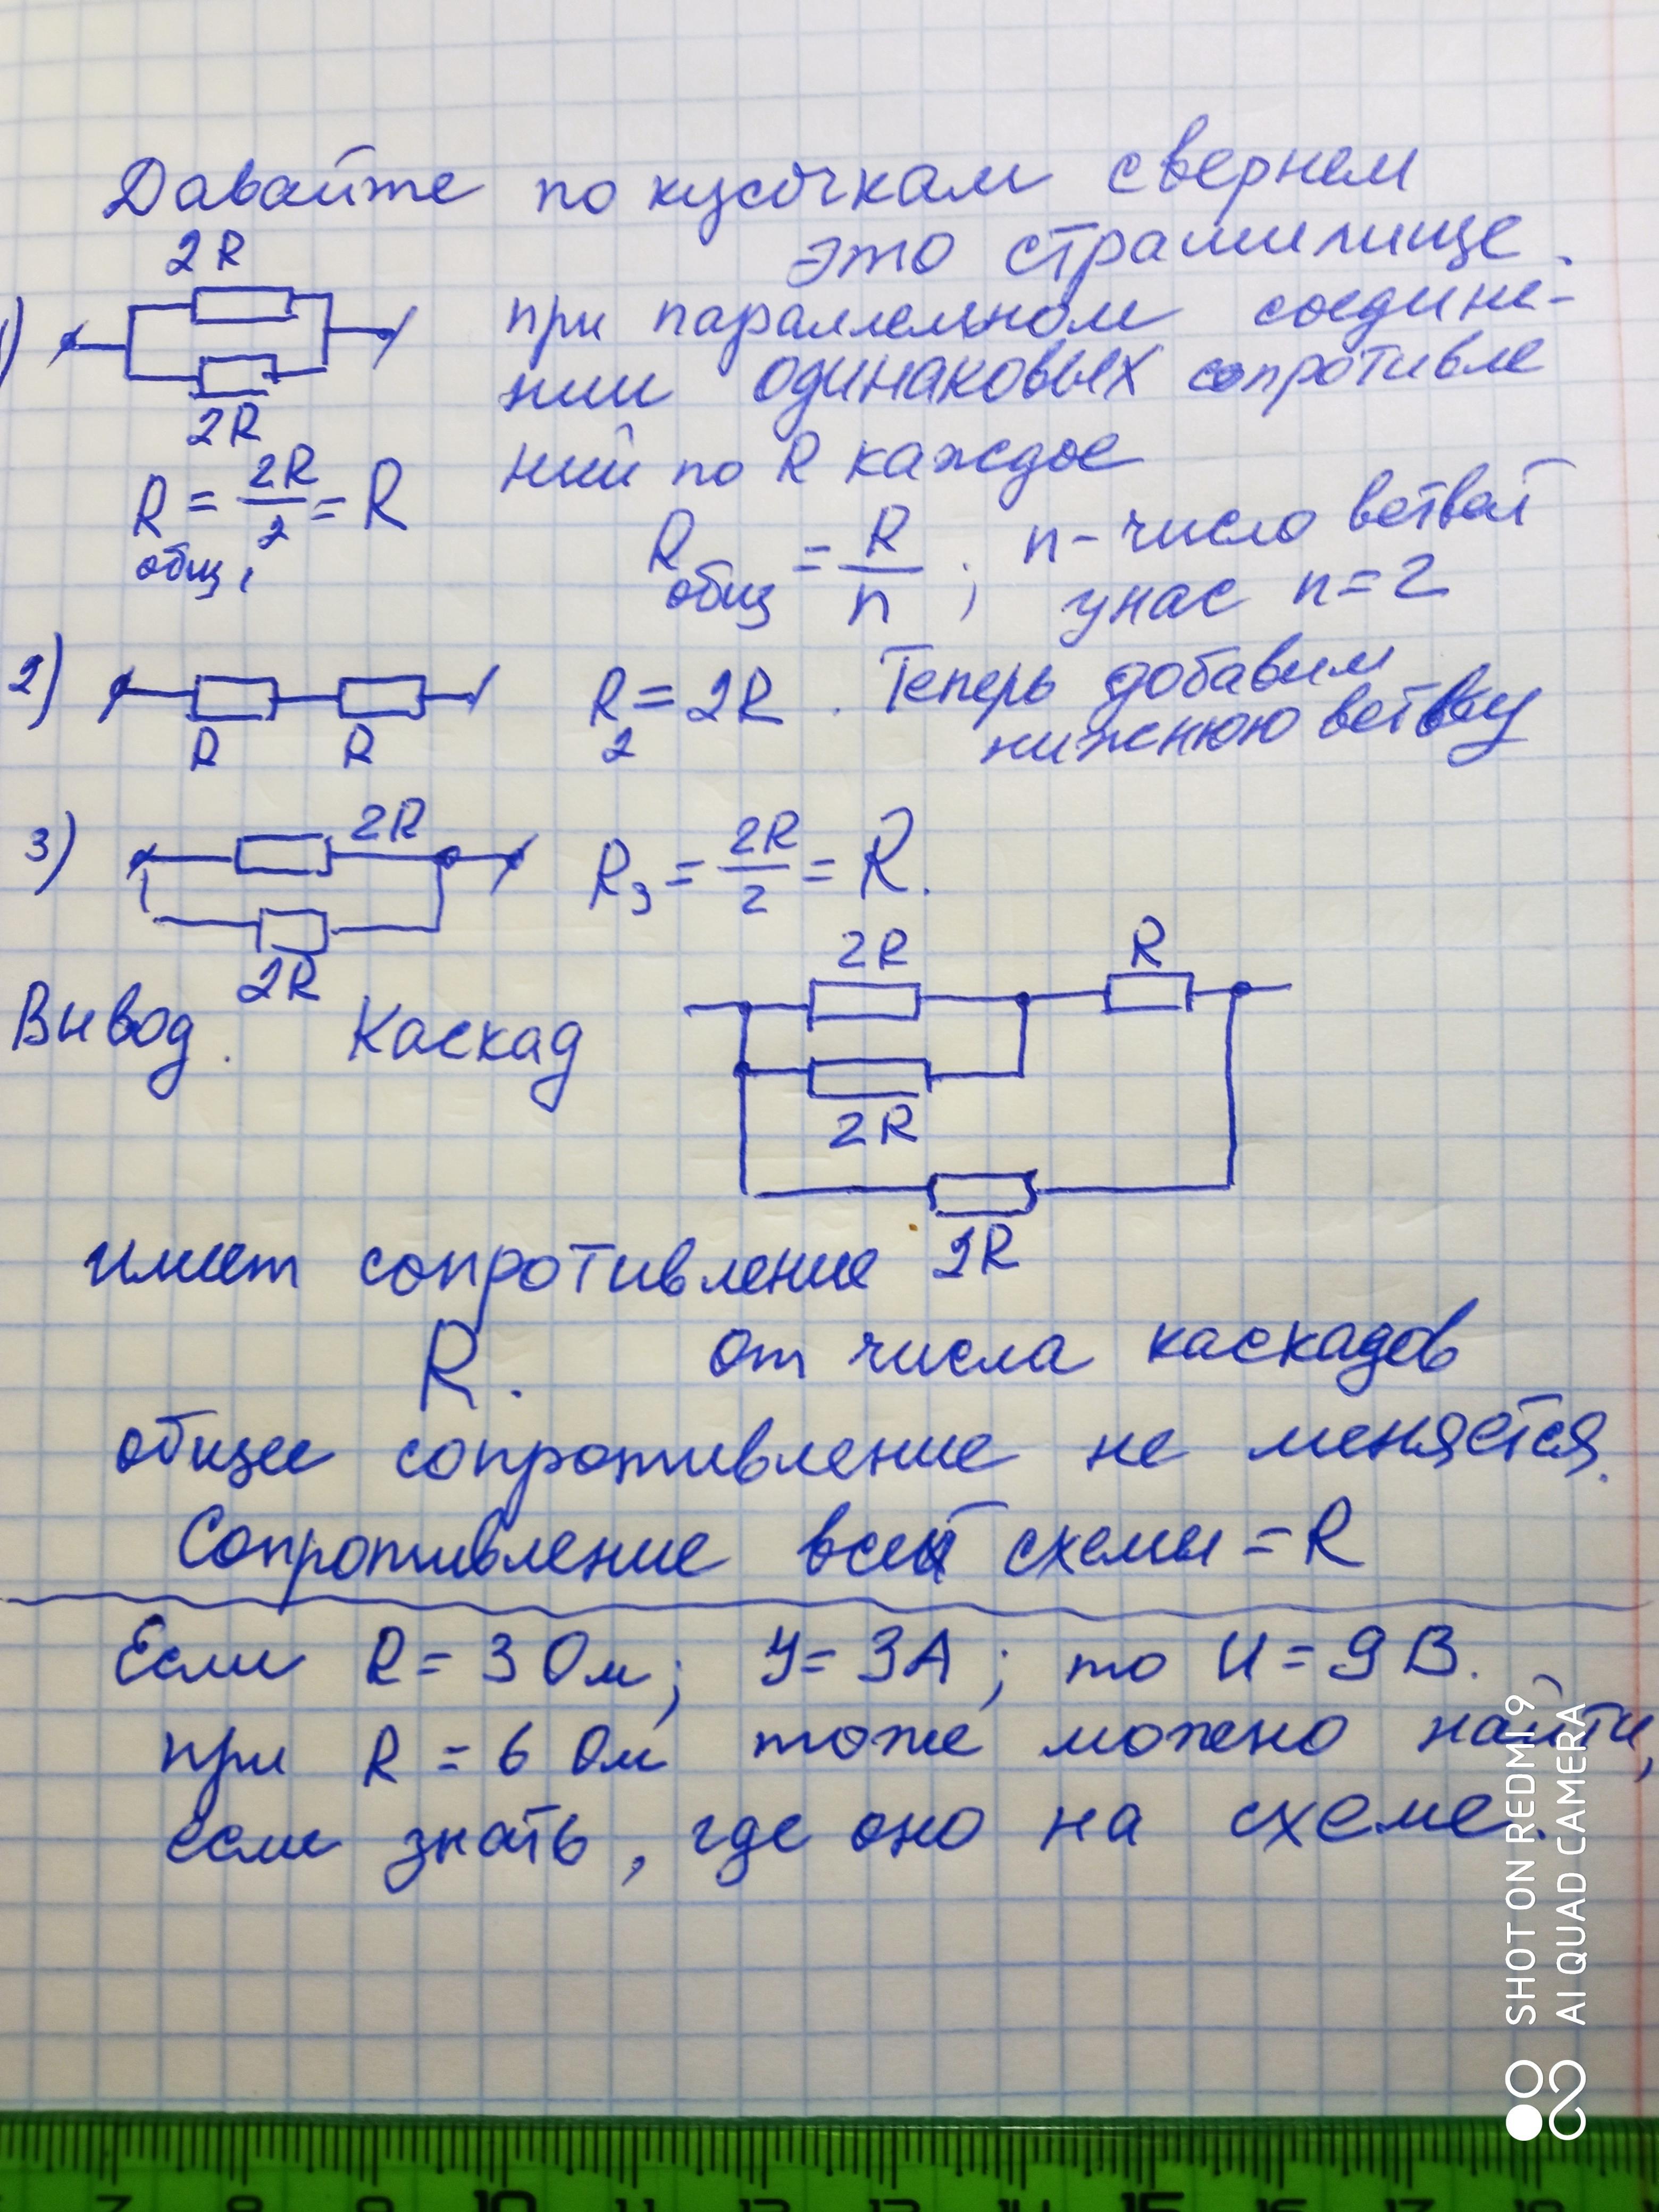 Давайте по кусочкам свернем
это страшилище.
2R
1)
при параллельном соедине-
нии одинаковых сопротивле
2R
ний по R каждое
R общ 1 = 2R/2 = R
R общ = R/n ; n - число ветвей
у нас n = 2
2)
R R
R2 = 2R. Теперь добавим
нижнюю ветвку
3)
2R
R3 = 2R/2 = R.
2R
2R R
Вывод. Каскад
2R
2R
имеет сопротивление
R. От числа каскадов
общее сопротивление не меняется.
Сопротивление всей схемы = R
Если R = 3 Ом; У = 3А; то U = 9 В.
при R = 6 Ом тоже можно найти,
если знать, где оно на схеме.
SHOT ON REDMI 9
AI QUAD CAMERA
7 8 9 10 11 12 13 14 15 16 17 18